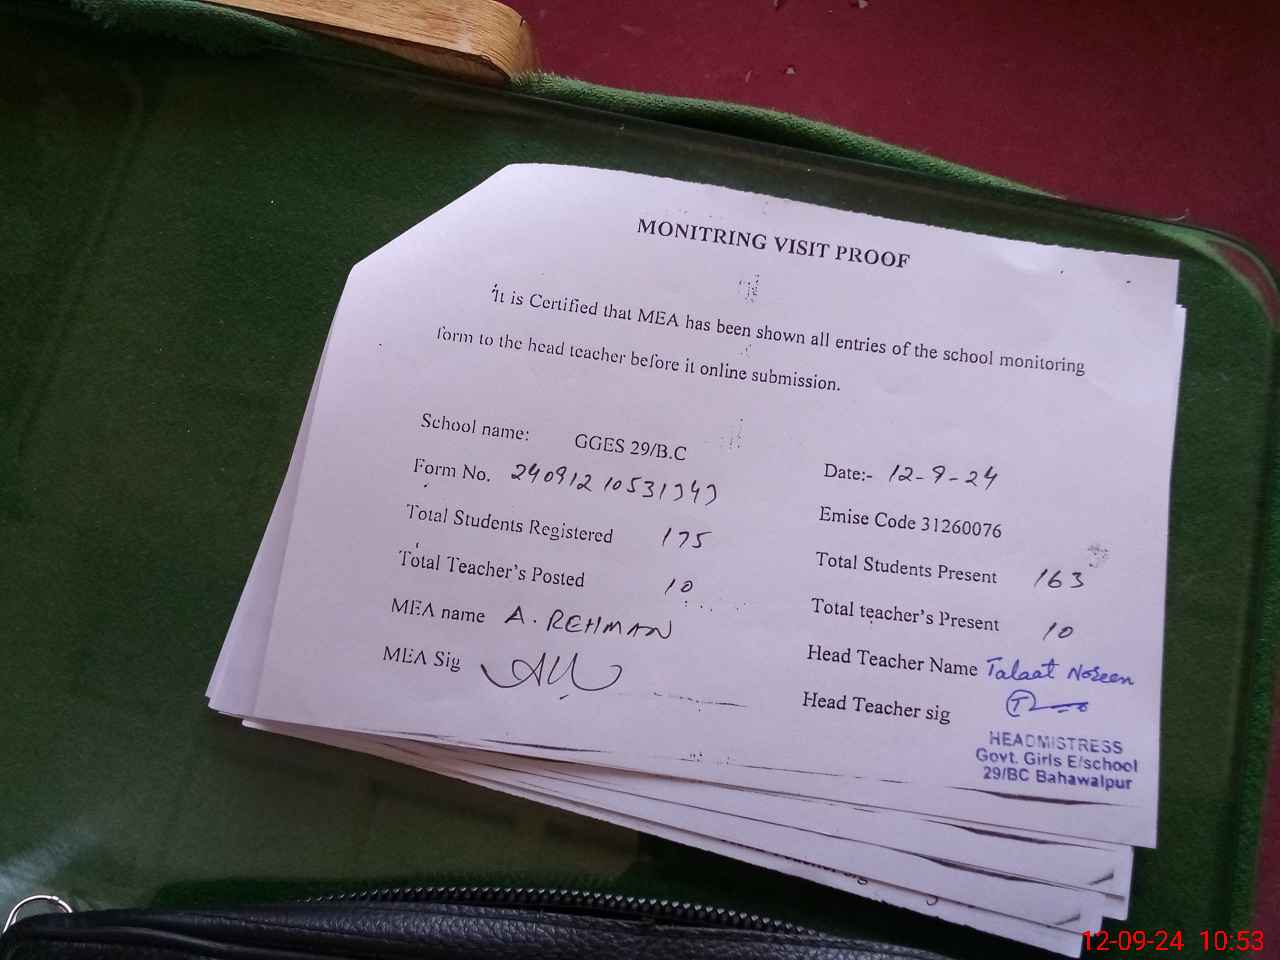 MONITRING VISIT PROOF
It is Certified that MEA has been shown all entries of the school monitoring
form to the head teacher before it online submission.
School name: GGES 29/B.C
Date:- 12-9-24
Form No.
Emise Code 31260076
Total Students Registered 175
Total Students Present 163
Total Teacher's Posted 10
Total teacher's Present 10
MEA name A. REHMAN
Head Teacher Name Talaat Noreen
MEA Sig
Head Teacher sig
HEADMISTRESS
Govt. Girls E/school
29/BC Bahawalpur
12-09-24 10:53